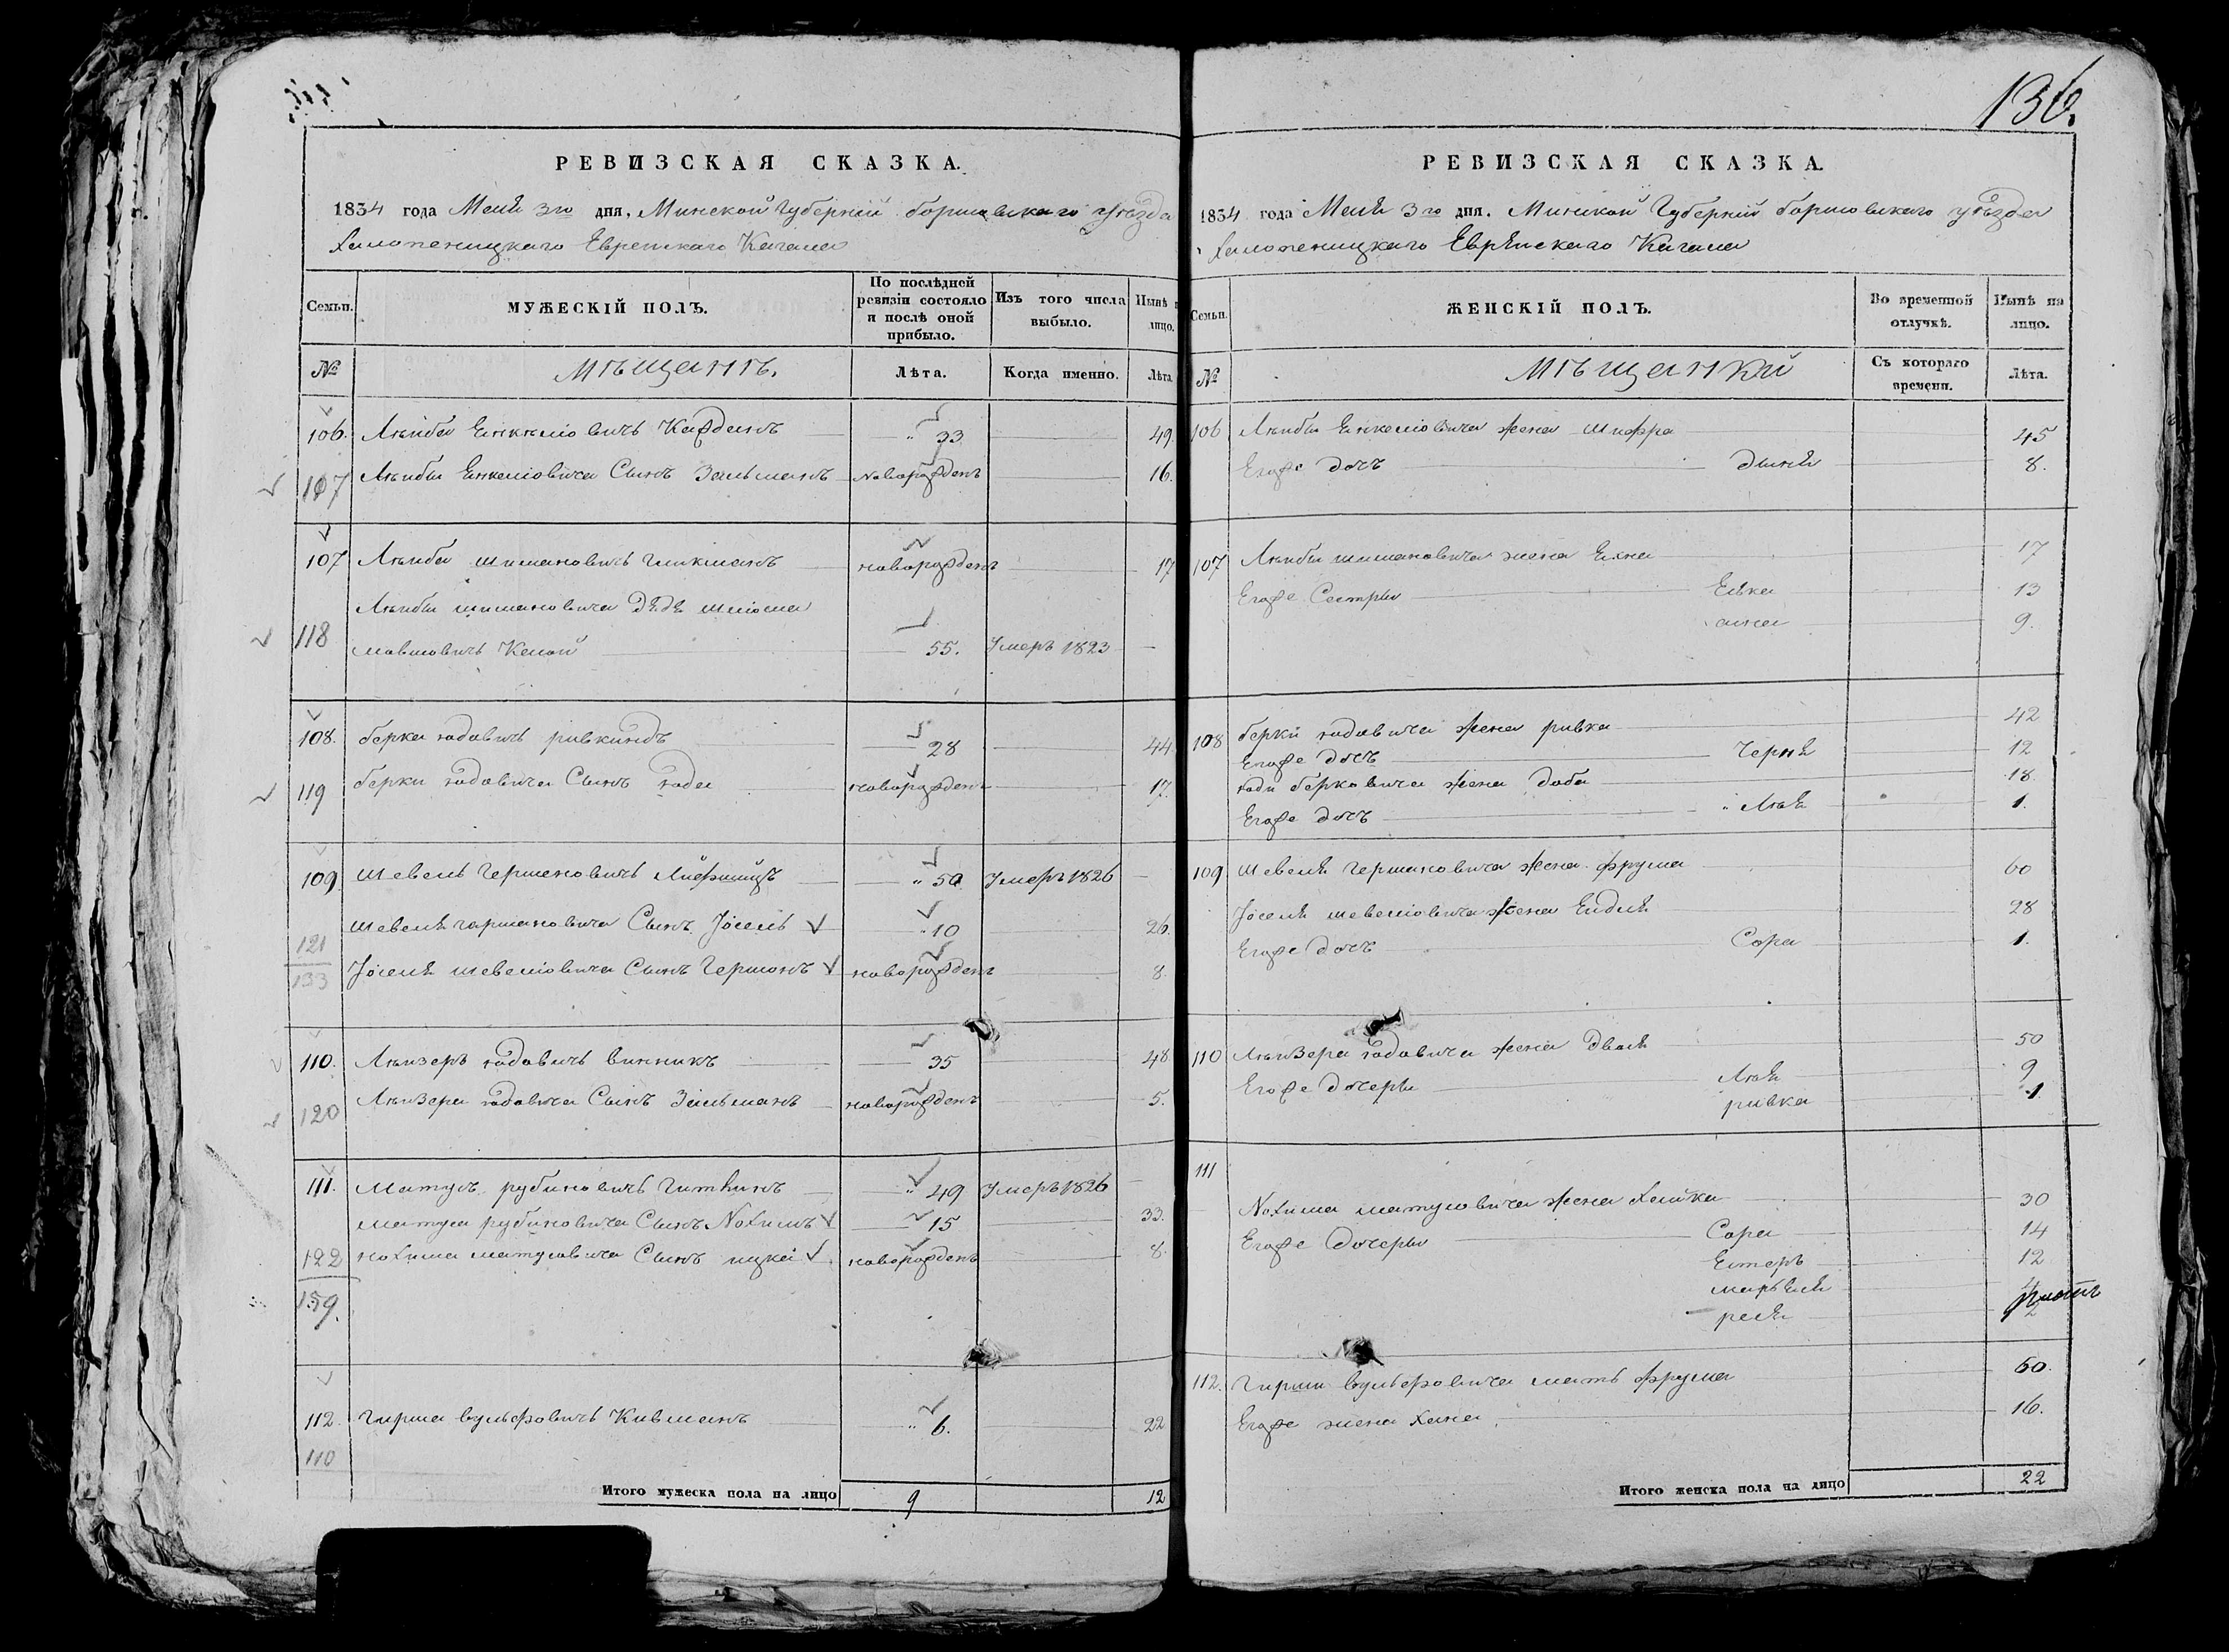 136.
РЕВИЗСКАЯ СКАЗКА.
1834 года Маия 3го дня, Минской Губерніи Борисовскаго уѣзда
Холопеницкаго Еврейскаго Кагала
Семьи. МУЖЕСКІЙ ПОЛЪ. По послѣдней ревизіи состояло и послѣ оной прибыло. Изъ того числа выбыло. Нынѣ на лицо.
№ Мѣщанѣ. Лѣта. Когда именно. Лѣта.
106. Лейба Енкелiовичъ 33 49
107 Лейбы Енкелiовича Сынъ Зальманъ новорожденъ 16.
107 Лейба Шимановичъ новорожденъ 17
Лейбы Шимановича дядя Шліома
118 55. Умеръ 1823
108. Берка Годовичъ Ривкиндъ 28 44
119 Берки Годовича Сынъ Года новорожденъ 17.
109 Шевель Гершеновичъ Лифшицъ 50 Умеръ 1826
Шевеля Гершановича Сынъ Іосель 10 26.
121
133 Іоселя Шевеліовича Сынъ Гершонъ новорожденъ 8.
110. Лейзеръ Годовичъ Винникъ 35 48
120 Лейзера Годовича Сынъ Зальманъ новорожденъ 5.
111. Матусъ Рубиновичъ Гиткинъ 49 Умеръ 1826
Матуса Рубиновича Сынъ Нохимъ 15 33.
122 Нохима Матусовича Сынъ Ицка новорожденъ 8.
159.
112. Гирша Вульфовичъ Кивманъ 6. 22
110
Итого мужеска пола на лицо 9 12
РЕВИЗСКАЯ СКАЗКА.
1834 года Маия 3го дня. Минской Губерніи Борисовскаго уѣзда
Холопеницкаго Еврейскаго Кагала
Семьи. ЖЕНСКІЙ ПОЛЪ. Во временной отлучкѣ. Нынѣ на лицо.
№ Мѣщанки Съ котораго времени. Лѣта.
106 Лейбы Енкеліовича жена Шифра 45
Егоже дочь Дыня 8.
107 Лейбы Шимановича жена Ехна 17
Егоже Сестры Еёвка 13
9.
108 Берки Годовича жена Ривка 42
Егоже дочь Черня 12
Годы Берковича жена Доба 18.
Егоже дочь Лея 1.
109 Шевеля Гершановича жена Фрума 60
Іоселя Шевеліовича жена Ейдля 28
Егоже дочь Сора 1.
110 Лейзера Годовича жена Двося 50
Егоже дочери Лея 9
Ривка 1
111
Нохима Матусовича жена Хайка 30
Егоже дочери Сора 14
Естеръ 12
Марьяся
Рася 2
112. Гирши Вульфовича мать Фрума 60.
Егоже жена Хана 16.
Итого женска пола на лицо 22